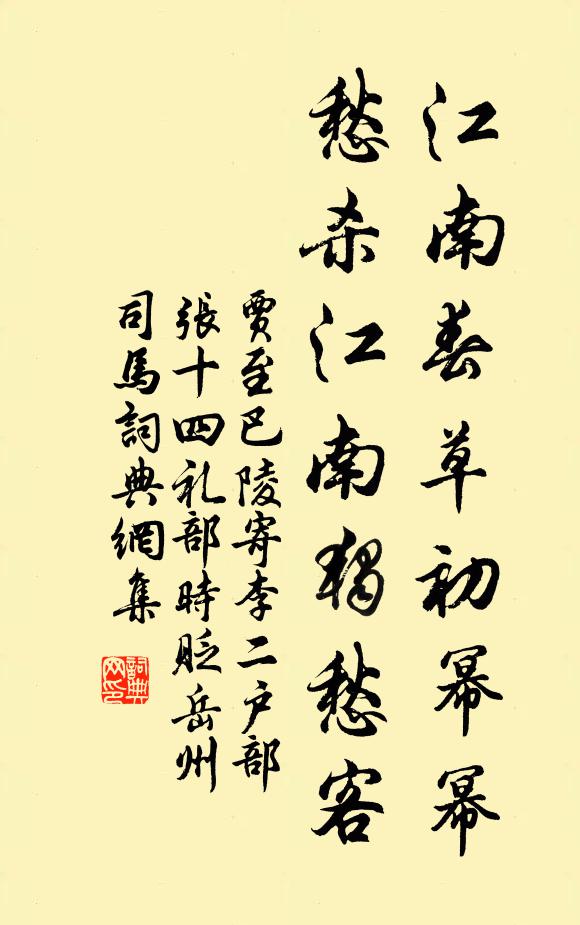 江南春草初幂幂
愁杀江南独愁客
賈至巴陵寄李二户部
張十四礼部時貶岳州
司馬詞典網集
詞典网印